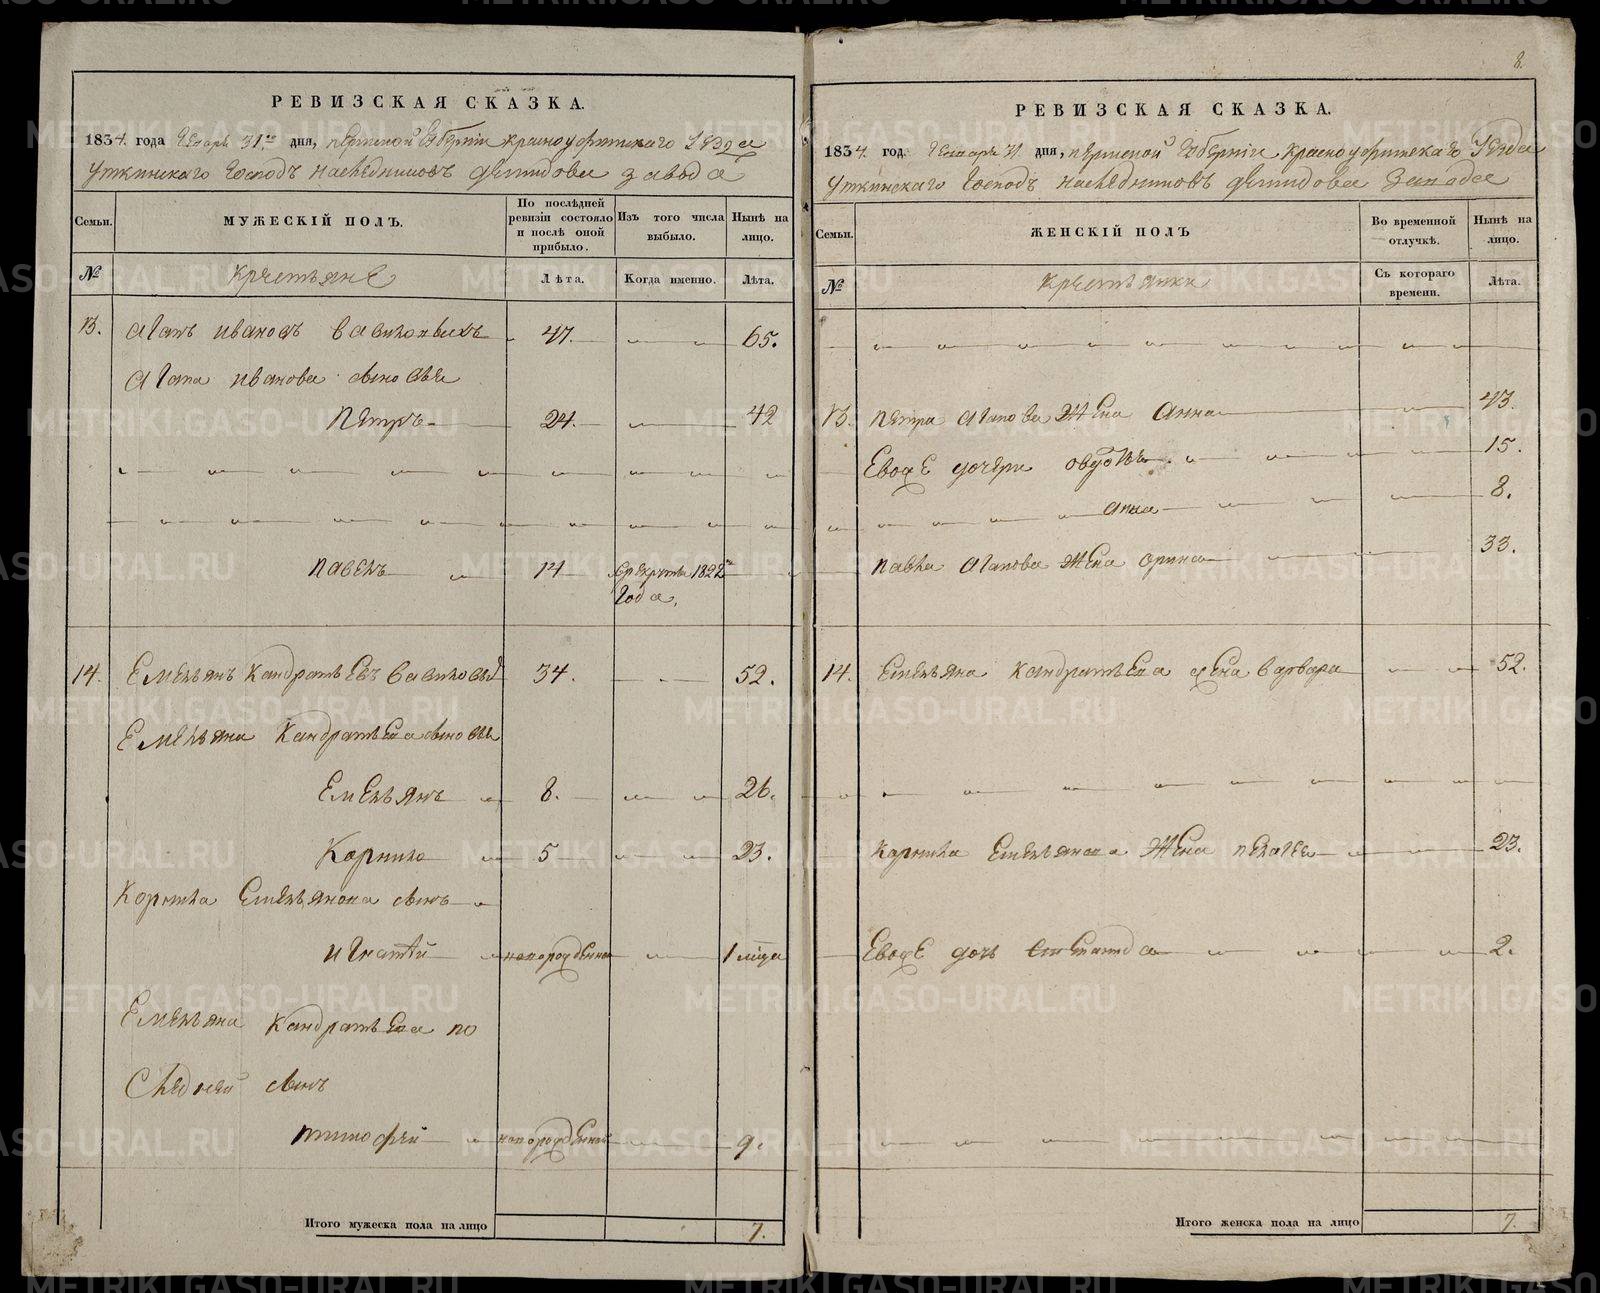 РЕВИЗСКАЯ СКАЗКА.
1834. года Генваря 31го дня, Пермской Губернїи Красноуфимскаго Уезда
Уткинскаго Господъ наследниковъ Демидовы завода
Семьи.
МУЖЕСКІЙ ПОЛЪ.
По послѣдней ревизіи состояло и послѣ оной прибыло.
Изъ того числа выбыло.
Нынѣ на лицо.
№
Крестьяне
Лѣта.
Когда именно.
Лѣта.
13. Агапъ Ивановъ 47. 65.
Агапа Иванова сыновья
Петръ 24. 42
Павелъ 14 в рекруты 1822
года,
14. Емельянъ Кандратьевъ 34. 52.
Емельяна Кандратьева сыновья
Емельянъ 8. 26.
Корнило 5 23.
Корнила Емельянова сынъ
Игнатїй новорожденной 1 мїца
Емельяна Кандратьева по
следней сынъ
Тимофей новорожденной 9.
Итого мужеска пола на лицо 7.
8.
РЕВИЗСКАЯ СКАЗКА.
1834. год. Генваря 31 дня, Пермской Губернїи Красноуфимскаго Уезда
Уткинскаго Господъ наследниковъ Демидовы завода
Семьи.
ЖЕНСКІЙ ПОЛЪ
Во временной отлучкѣ.
Нынѣ на лицо.
№
Крестьянки
Съ котораго времени.
Лѣта.
13. Петра Агапова жена Анна 43.
Евоже дочери Овдотья 15.
Анна 8.
Павла Агапова жена Орина 33.
14. Емельяна Кандратьева жена Варвара 52.
Карнила Емельянова жена Пелагея 23.
Евоже дочь Степанида 2.
Итого женска пола на лицо 7.
METRIKI.GASO-URAL.RU